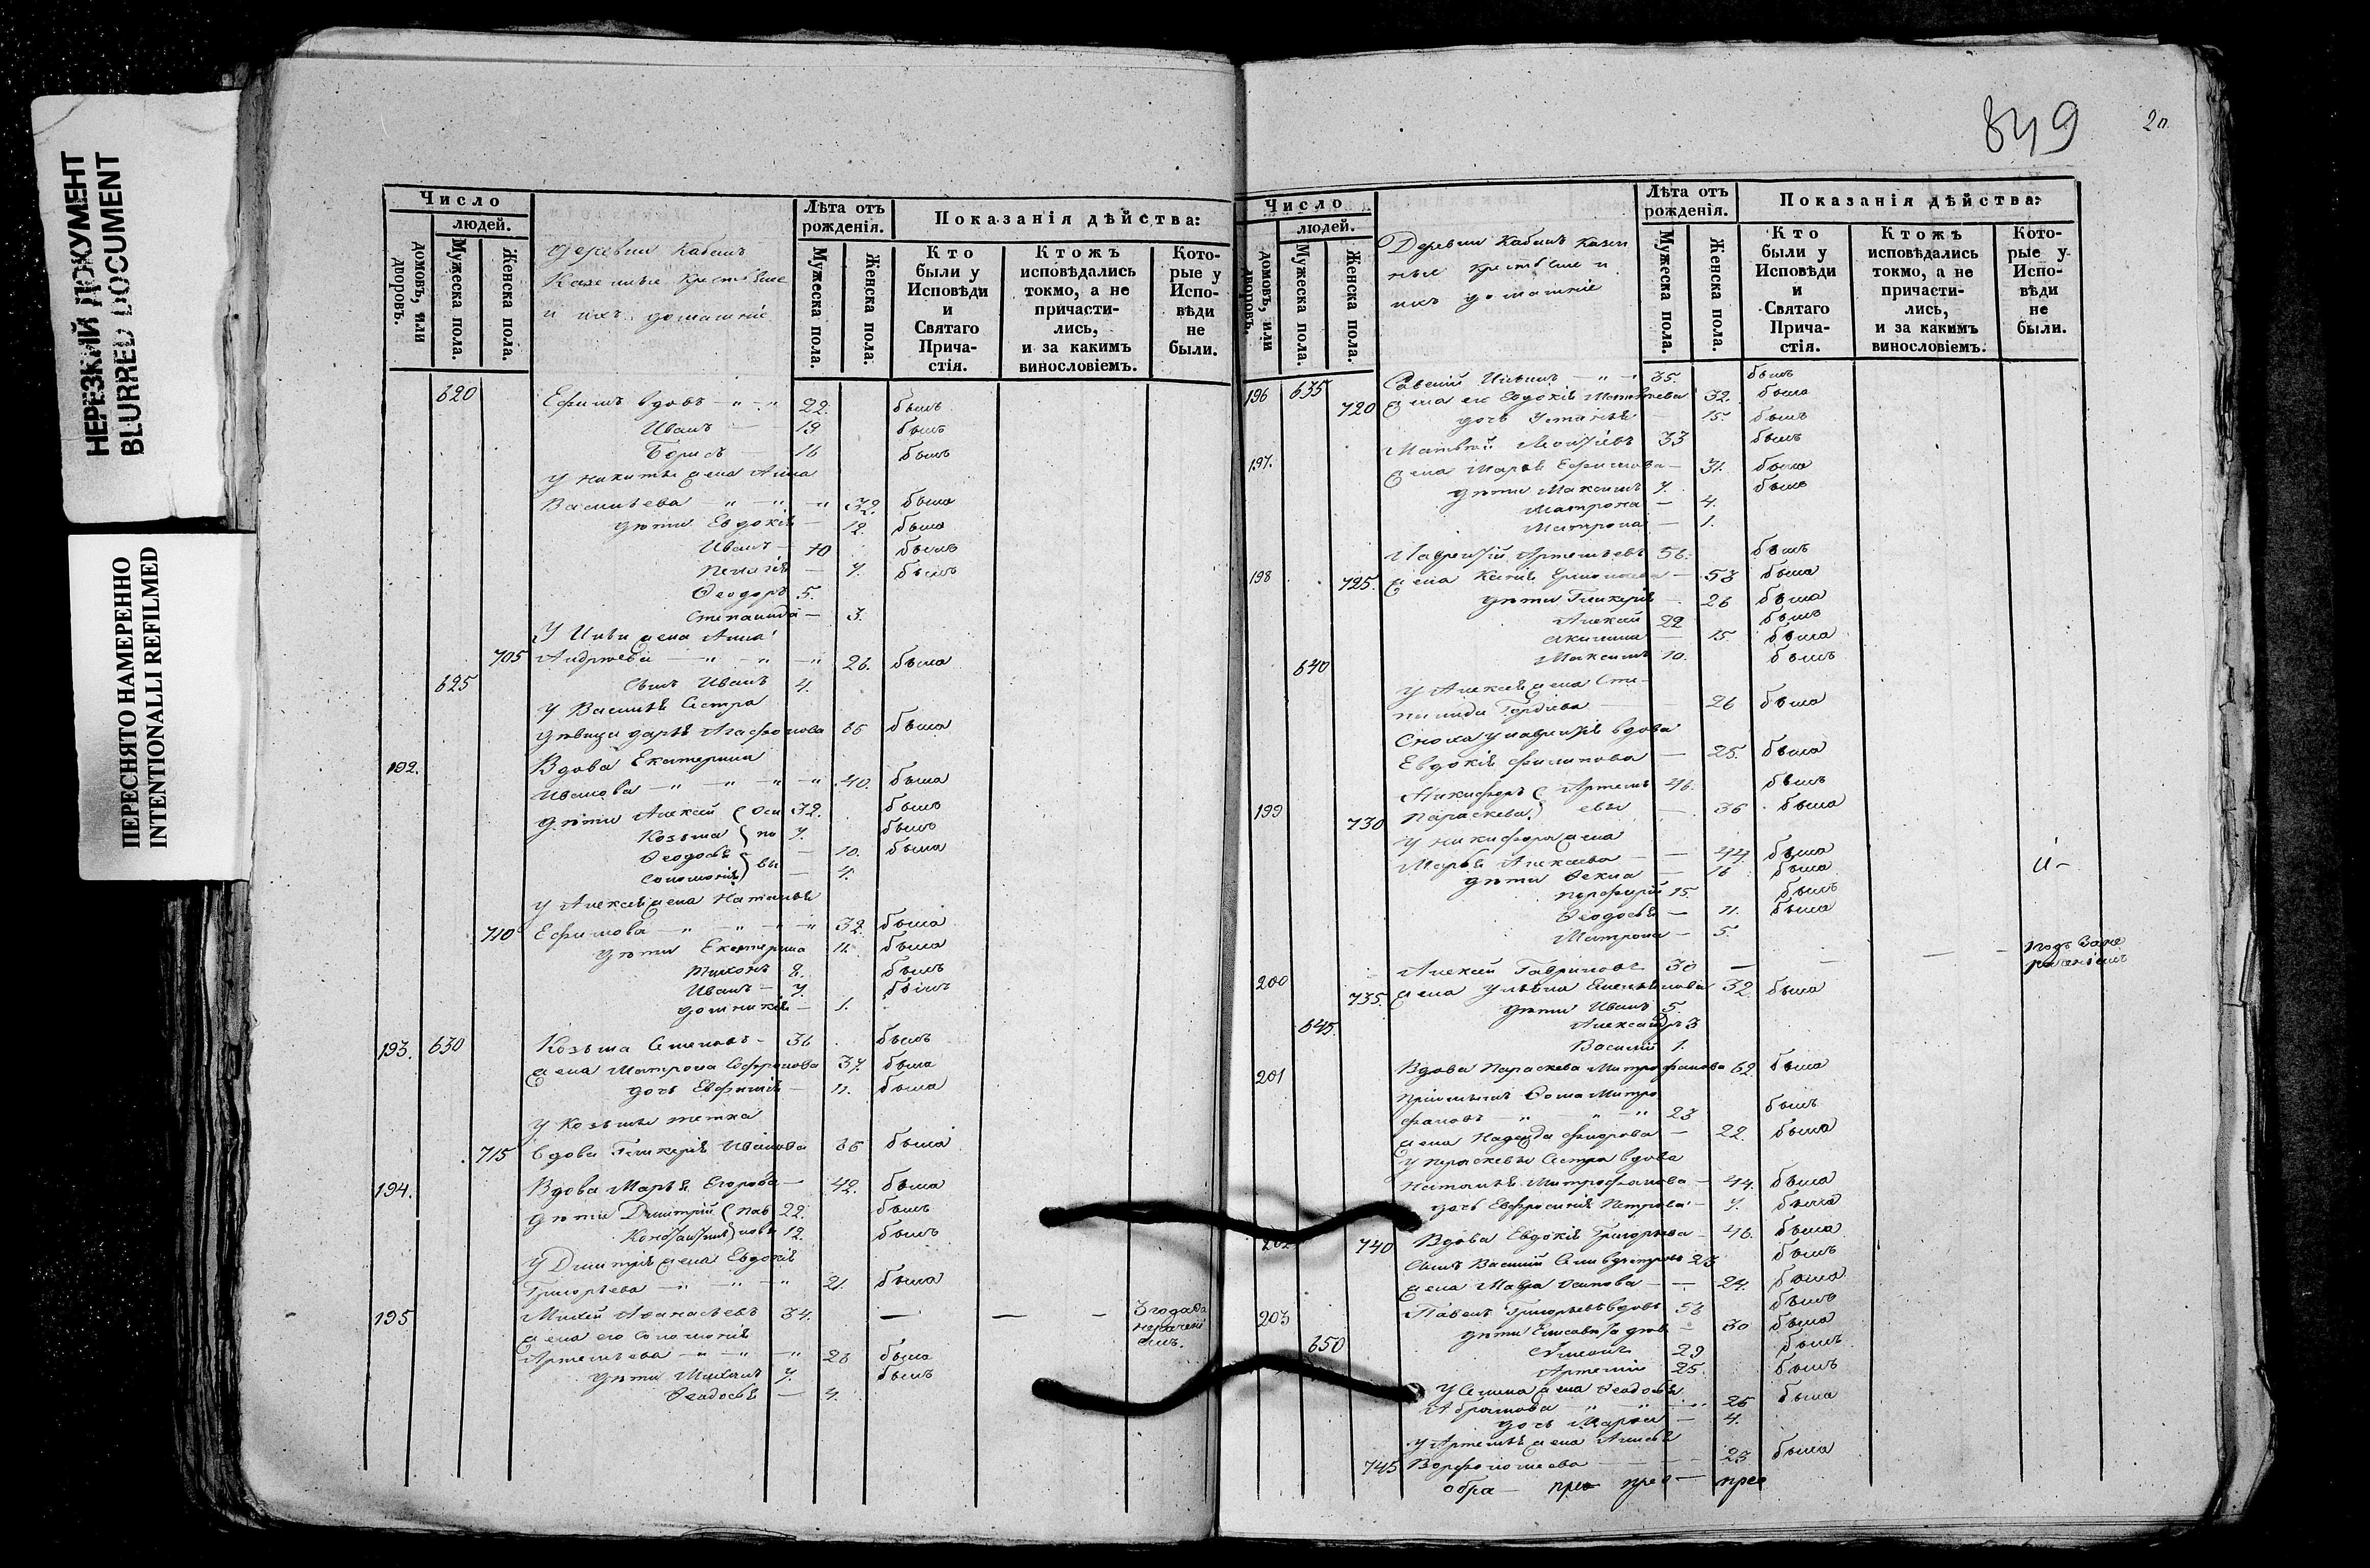 НЕРЕЗКИЙ ДОКУМЕНТ
BLURRED DOCUMENT
ПЕРЕСНЯТО НАМЕРЕННО
INTENTIONALLI REFILMED
Число
людей.
домовъ, или дворовъ.
Мужеска пола.
Женска пола.
Деревни Кабанъ
Казенные крестьяне
и ихъ домашніе
Лѣта отъ рожденія.
Мужеска пола.
Женска пола.
Показанія дѣйства:
Кто были у Исповѣди и Святаго Прича-стія.
Ктожъ исповѣдались токмо, а не причасти-лись, и за какимъ винословіемъ.
Кото-рые у Испо-вѣди не были.
620 Ефимъ вдовъ 22. былъ
Иванъ 19 былъ
Борисъ 16 былъ
У Никиты жена Анна
Васильева 32. былa
дѣти Евдокія 12. была
Иванъ 10 былъ
Пелагія 7. былъ
Ѳеодоръ 5.
Степанида 3.
У жена Анна
705 Андреева 26. была
625 сынъ Иванъ 4.
У Василья сестра
дѣвица Дарья Агафонова 36 была
192. Вдова Екатерина
Иванова 40. была
дѣти Алексѣй (Оси 32. былъ
Козьма по 7. былъ
Ѳеодосья 10. была
Соломонія) вы 4.
У Алексѣя жена Наталья
710 Ефимова 32. была
дѣти Екатерина 11. была
Тихонъ 8. былъ
Иванъ 7. былъ
Домникія 1.
193. 630 Козьма Семеновъ 36 былъ
жена Матрона Софронова 37. была
дочь Евфимія 11. была
У Козьмы тетка
715 вдова Гликерія Иванова 66 была
194. Вдова Марья Егорова 42. была
дѣти Дмитрій (Пав 22. былъ
Константинъ) ловы 12. былъ
У Дмитрія жена Евдокія
Григорьева 21. была
195 Михей Аѳанасьевъ 34. — — — 3 года за
жена его Соломонія
Артемьева 28 была
дѣти Михаилъ 7. былъ
Ѳеодосья 4.
849
20
Число
людей.
домовъ, или дворовъ.
Мужеска пола.
Женска пола.
Деревни Кабанъ Казен
ные крестьяне и
ихъ домашніе
Лѣта отъ рожденія.
Мужеска пола.
Женска пола.
Показанія дѣйства:
Кто были у Исповѣди и Святаго Прича-стія.
Ктожъ исповѣдались токмо, а не причасти-лись, и за какимъ винословіемъ.
Кото-рые у Испо-вѣди не были.
196 635 Савелій Ильинъ 35. былъ
720 жена его Евдокія Матвѣева 32. была
дочь Устинья 15. былъ
Матвѣй 33 былъ
197. жена Марья Ефимова 31. была
дѣти Максимъ 7. былъ
Матрона 4.
Матрона 1.
Лаврентій Артемьевъ 56. былъ
198 725. жена Ксенія 53 была
дѣти Гликерія 26 была
Алексѣй 22 былъ
Акилина 15. была
640 Максимъ 10. былъ
У Алексѣя жена Сте-
панида Гордѣева 26 была
Сноха у Лаврентія вдова
Евдокія Филипова 25. была
Никифоръ ( Артемь 46. былъ
199 730 Параскева) евы 36 была
У Никифора жена
Марья Алексѣева 44. была
дѣти Ѳекла 16 была
Порфирій 15. былъ
Ѳеодосья 11. была
Матрона 5.
200 Алексѣй Гавриловъ 30 — — — 1 годъ за не
735. жена Ульяна Емельянова 32. была
дѣти Иванъ 5.
645. Александръ 3
Василій 1.
201 Вдова Параскева Митрофанова 62. была
Пріемышъ Ѳома Митро
фановъ 23 былъ
жена Надежда Фирсова 22. была
У Праскевьи сестра вдова
Наталья Митрофанова 44. была
дочь Евфросинія Петрова 7. была
202 740 Вдова Евдокія Григорьева 46. была
сынъ Василій 23 былъ
жена Мавра Осипова 24. была
203 Павелъ Григорьевъ вдовъ 58 былъ
дѣти Елисавета 30 была
650 29 былъ
Артемій 25. былъ
У Семена жена Ѳеодосья
Абрамова 26 была
дочь Марья 4.
У Артемья жена Анисья
745 Ворфоломеева 23 была